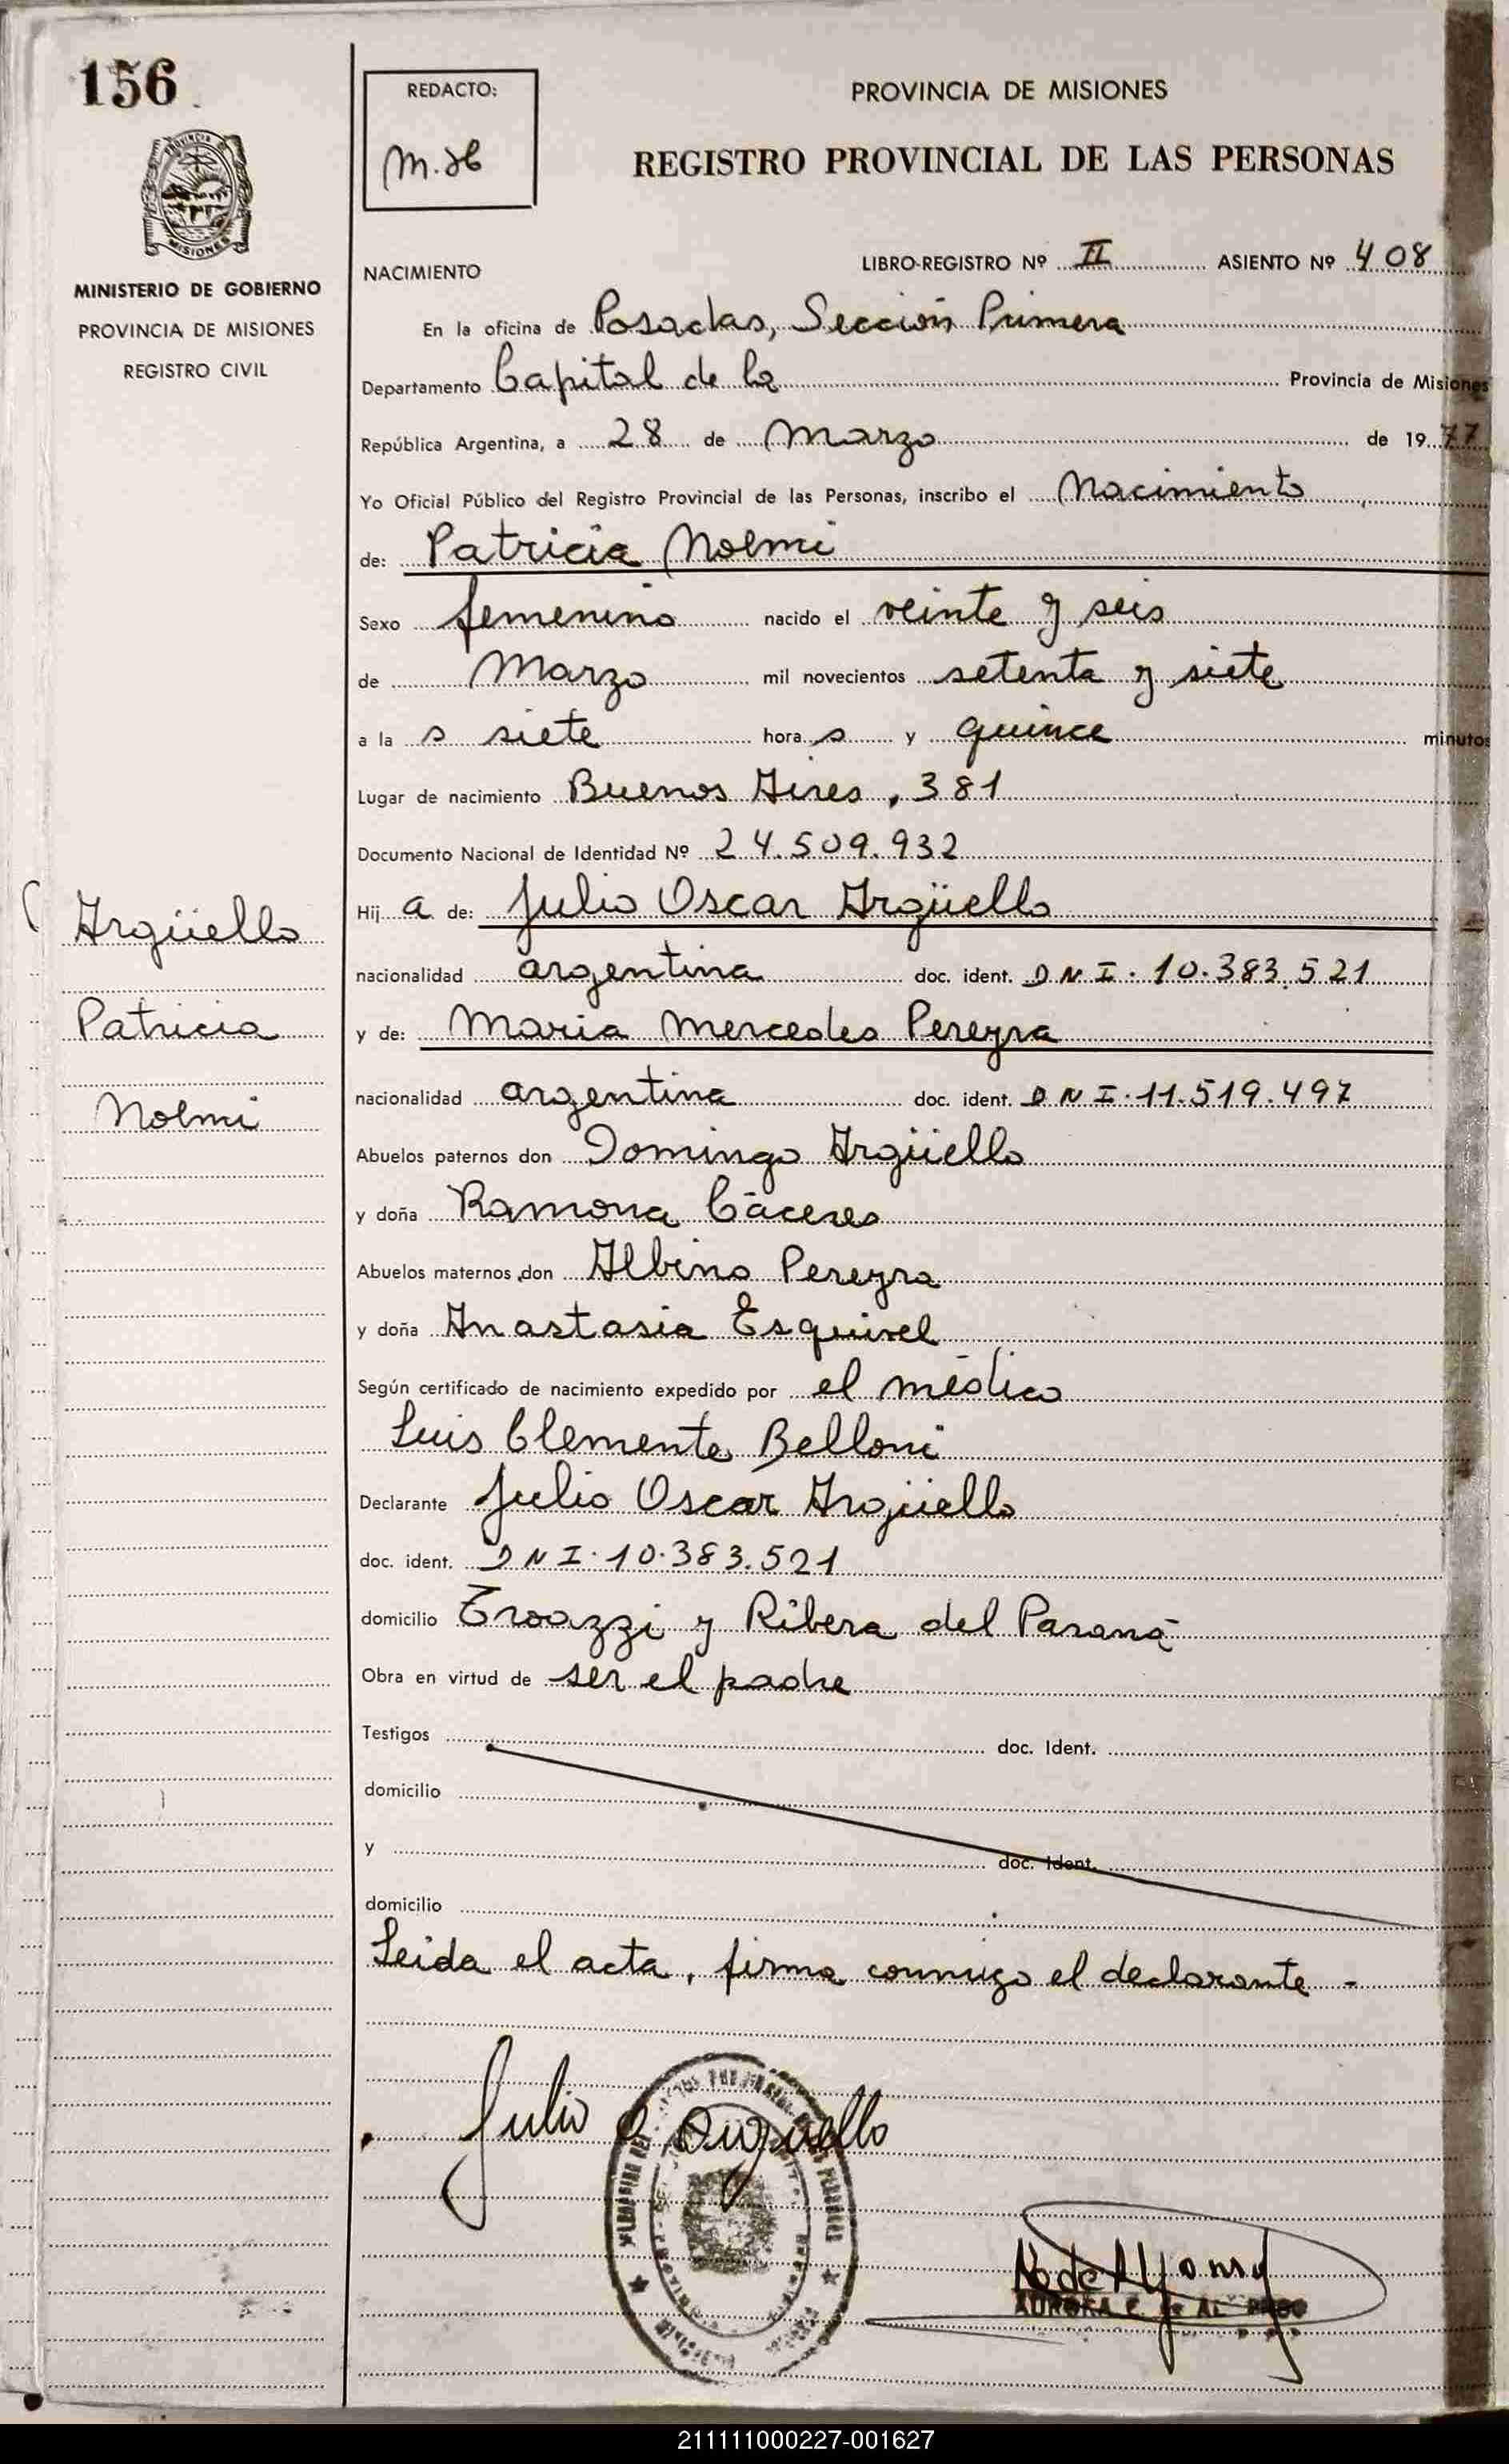 156
REDACTO:
M.H
PROVINCIA DE MISIONES
REGISTRO PROVINCIAL DE LAS PERSONAS
PROVINCIA DE
MISIONES
MINISTERIO DE GOBIERNO
PROVINCIA DE MISIONES
REGISTRO CIVIL
NACIMIENTO
LIBRO-REGISTRO Nº II ASIENTO Nº 408
En la oficina de Posadas, Sección Primera
Departamento Capital de la Provincia de Misiones
República Argentina, a 28 de Marzo de 1977
Yo Oficial Público del Registro Provincial de las Personas, inscribo el Nacimiento
de: Patricia Noemi
Sexo femenino nacido el veinte y seis
de Marzo mil novecientos setenta y siete
a la s siete hora s y quince minutos
Lugar de nacimiento Buenos Aires, 381
Documento Nacional de Identidad Nº 24.509.932
Hij a de: Julio Oscar Argüello
Argüello
nacionalidad argentina doc. ident. DNI. 10.383.521
Patricia
y de: Maria Mercedes Pereyra
nacionalidad argentina doc. ident. DNI. 11.519.497
Noemi
Abuelos paternos don Domingo Argüello
y doña Ramona Cáceres
Abuelos maternos don Albino Pereyra
y doña Anastasia Esquivel
Según certificado de nacimiento expedido por el médico
Luis Clemente Belloni
Declarante Julio Oscar Argüello
doc. ident. DNI. 10.383.521
domicilio Eroazzi y Ribera del Paraná
Obra en virtud de ser el padre
Testigos doc. Ident.
domicilio
y doc. Ident.
domicilio
Leida el acta, firma conmigo el declarante -
Julio O Arguello
AURORA E. de AL
211111000227-001627